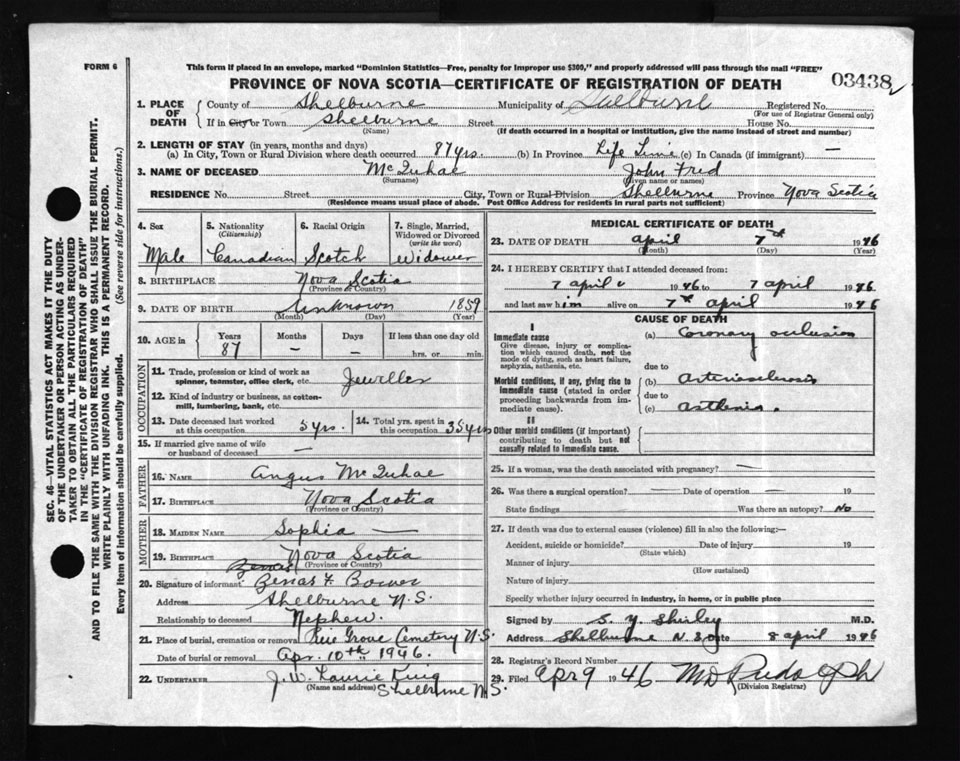 FORM 6
This form if placed in an envelope, marked "Dominion Statistics—Free, penalty for improper use $300," and properly addressed will pass through the mail "FREE"
PROVINCE OF NOVA SCOTIA—CERTIFICATE OF REGISTRATION OF DEATH
03438
1. PLACE OF DEATH
County of Shelburne Municipality of Shelburne Registered No.
(For use of Registrar General only)
If in City or Town Shelburne Street House No.
(Name) (If death occurred in a hospital or institution, give the name instead of street and number)
2. LENGTH OF STAY (in years, months and days)
(a) In City, Town or Rural Division where death occurred 87 yrs. (b) In Province Life Time (c) In Canada (if immigrant) —
3. NAME OF DECEASED McQuhae John Fred
(Surname) (Given name or names)
RESIDENCE No. Street City, Town or Rural Division Shelburne Province Nova Scotia
(Residence means usual place of abode. Post Office Address for residents in rural parts not sufficient)
4. Sex
Male
5. Nationality
(Citizenship)
Canadian
6. Racial Origin
Scotch
7. Single, Married, Widowed or Divorced
(write the word)
Widower
8. BIRTHPLACE Nova Scotia
(Province or Country)
9. DATE OF BIRTH Unknown 1859
(Month) (Day) (Year)
10. AGE in
Years
87
Months
—
Days
—
If less than one day old
hrs. or min.
OCCUPATION
11. Trade, profession or kind of work as
spinner, teamster, office clerk, etc. Jeweller
12. Kind of industry or business, as cotton-
mill, lumbering, bank, etc.
13. Date deceased last worked
at this occupation 5 yrs.
14. Total yrs. spent in
this occupation 35 yrs
15. If married give name of wife
or husband of deceased —
FATHER
16. NAME Angus McQuhae
17. BIRTHPLACE Nova Scotia
(Province or Country)
MOTHER
18. MAIDEN NAME Sophia —
19. BIRTHPLACE Nova Scotia
(Province or Country)
20. Signature of informant Bower
Address Shelburne N.S.
Relationship to deceased Nephew.
21. Place of burial, cremation or removal Pine Grove Cemetery N.S.
Date of burial or removal Apr. 10th 1946.
22. UNDERTAKER J. W. Laurie King
(Name and address) Shelburne N.S.
MEDICAL CERTIFICATE OF DEATH
23. DATE OF DEATH April 7th 1946
(Month) (Day) (Year)
24. I HEREBY CERTIFY that I attended deceased from:
7 April 1946 to 7 April 1946
and last saw him alive on 7th April 1946
CAUSE OF DEATH
I
Immediate cause
Give disease, injury or complica-
tion which caused death, not the
mode of dying, such as heart failure,
asphyxia, asthenia, etc.
(a) Coronary occlusion
due to
Morbid conditions, if any, giving rise to
immediate cause (stated in order
proceeding backwards from im-
mediate cause).
(b) Arteriosclerosis
due to
(c) Asthenia.
II
Other morbid conditions (if important)
contributing to death but not
causally related to immediate cause.
25. If a woman, was the death associated with pregnancy? —
26. Was there a surgical operation? — Date of operation — 19
State findings Was there an autopsy? No
27. If death was due to external causes (violence) fill in also the following:—
Accident, suicide or homicide? Date of injury 19
(State which)
Manner of injury
(How sustained)
Nature of injury
Specify whether injury occurred in industry, in home, or in public place
Signed by S. Y. Shirley M.D.
Address Shelburne N.S. Date 8 April 1946
28. Registrar's Record Number
29. Filed Apr 9 1946
(Division Registrar)
SEC. 46—VITAL STATISTICS ACT MAKES IT THE DUTY
OF THE UNDERTAKER OR PERSON ACTING AS UNDER-
TAKER TO OBTAIN ALL THE PARTICULARS REQUIRED
IN THE "CERTIFICATE OF REGISTRATION OF DEATH"
AND TO FILE THE SAME WITH THE DIVISION REGISTRAR WHO SHALL ISSUE THE BURIAL PERMIT.
WRITE PLAINLY WITH UNFADING INK. THIS IS A PERMANENT RECORD.
Every item of information should be carefully supplied. (See reverse side for instructions.)